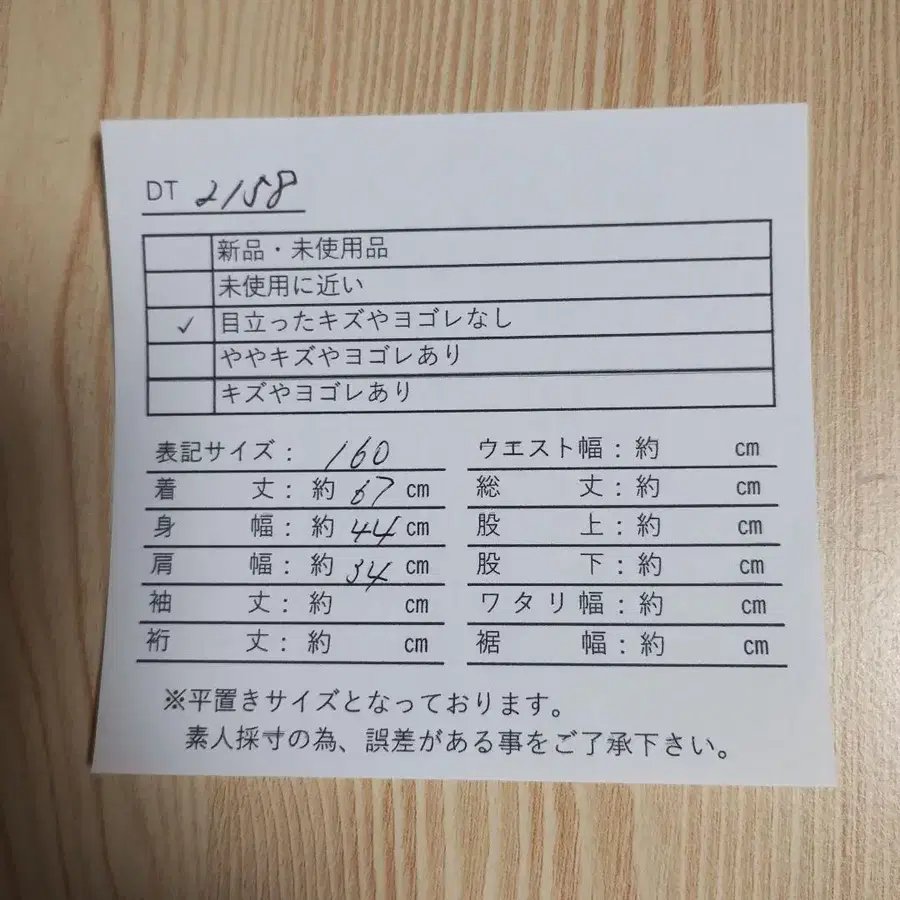 DT 2158
新品・未使用品
未使用に近い
✓ 目立ったキズやヨゴレなし
ややキズやヨゴレあり
キズやヨゴレあり
表記サイズ： 160
着 丈：約 67 cm
身 幅：約 44 cm
肩 幅：約 34 cm
袖 丈：約 cm
裄 丈：約 cm
ウエスト幅：約 cm
総 丈：約 cm
股 上：約 cm
股 下：約 cm
ワタリ幅：約 cm
裾 幅：約 cm
※平置きサイズとなっております。
素人採寸の為、誤差がある事をご了承下さい。